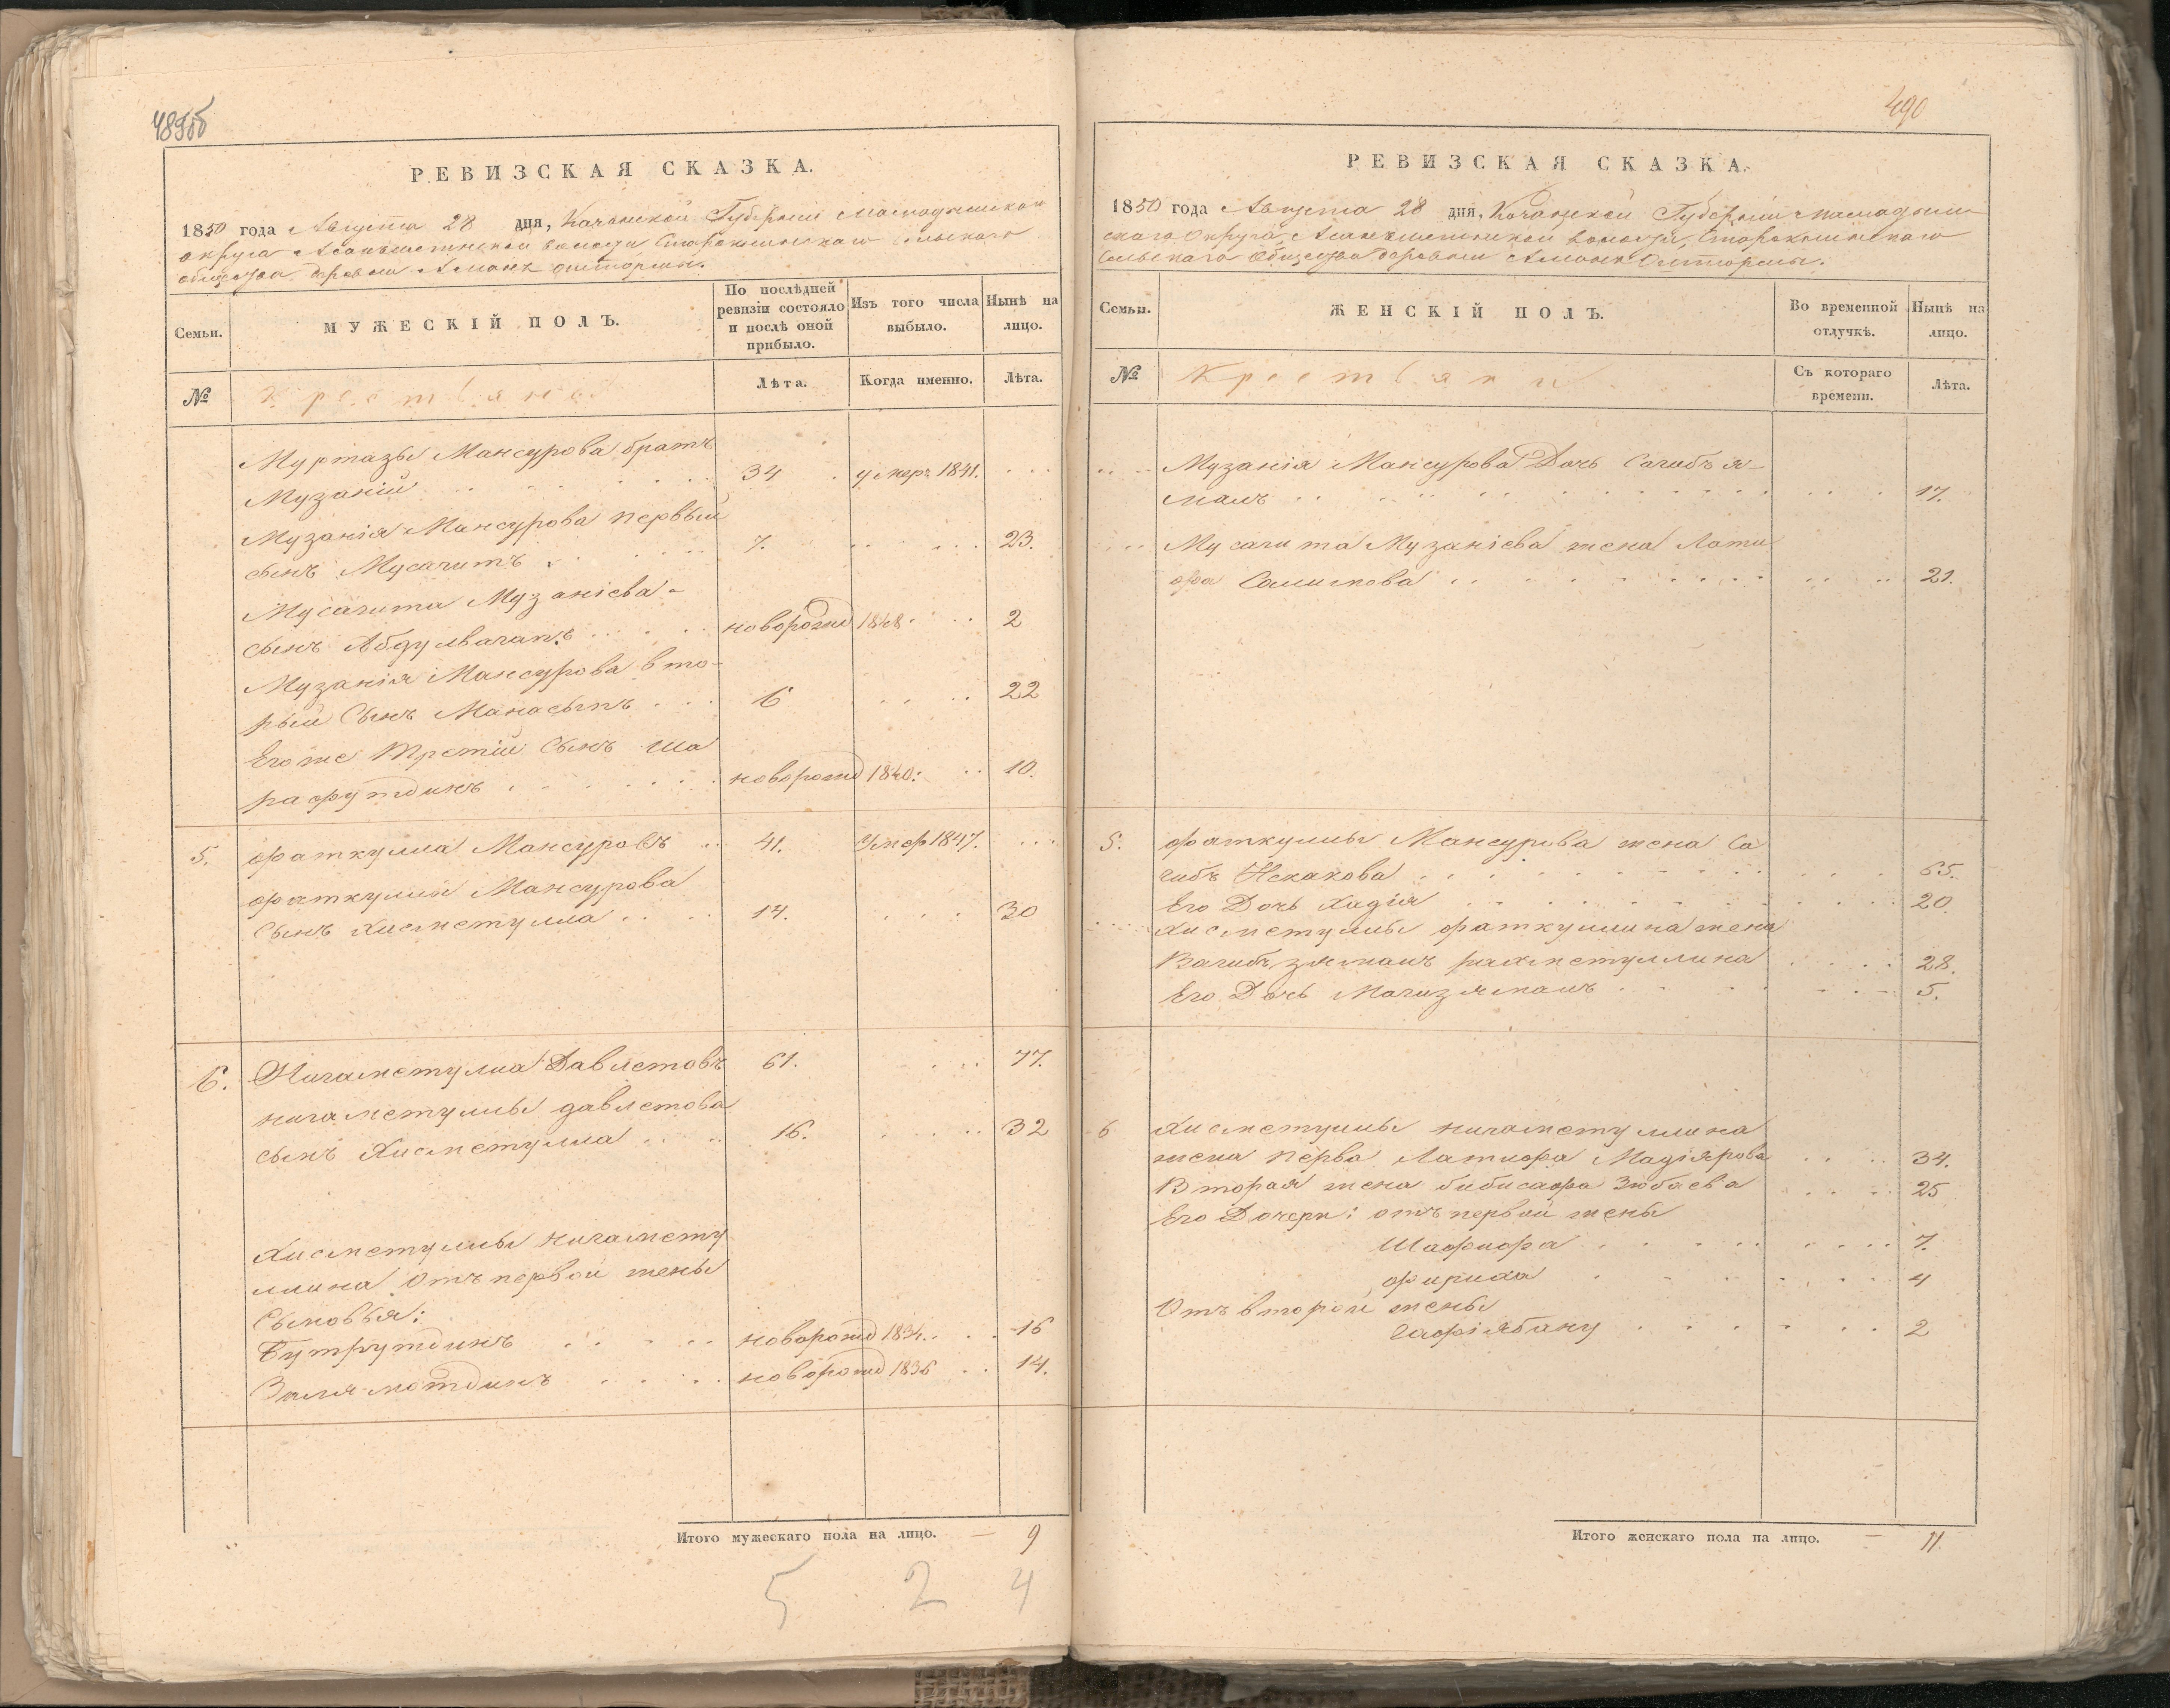 489об
РЕВИЗСКАЯ СКАЗКА.
1850 года Августа 28 дня, Казанской Губернiи Мамадышскаго
округа волости Сельскаго
общества деревни
Семьи.
МУЖЕСКIЙ ПОЛЪ.
По послѣдней ревизiи состояло и послѣ оной прибыло.
Изъ того числа выбыло.
Нынѣ на лицо.
№
Крестьяне
Лѣта.
Когда именно.
Лѣта.
Муртазы Мансурова братъ
Музанiй 34 умеръ 1841.
Музанiя Мансурова первый
сынъ Мусагитъ 7. 23.
Мусагита Музанiева
сынъ Абдулвагапъ новорожд 1848 2
Музанiя Мансурова вто-
рый Сынъ Манасыпъ 6 22
Егоже Третiй Сынъ Ша
рафутдинъ новорожд 1840. 10.
5. Фаткулла Мансуровъ 41. Умер 1847.
Фаткуллы Мансурова
Сынъ Хисметулла 14. 30
6. Нигаметулла Давлетовъ 61. 77.
Нигаметуллы давлетова
сынъ Хисметулла 16. 32
Хисметуллы нигамету
ллина Отъ первой жены
Сыновья:
Бутрутдинъ новорожд 1834. 16
Залямотдинъ новорожд 1836 14.
Итого мужескаго пола на лицо. — 9
5 2 4
490
РЕВИЗСКАЯ СКАЗКА.
1850 года Августа 28 дня, Казанской Губернiи Мамадыш-
скаго Округа волости,
Сельскаго Общества деревни
Семьи.
ЖЕНСКIЙ ПОЛЪ.
Во временной отлучкѣ.
Нынѣ на лицо.
№
Крестьянки
Съ котораго времени.
Лѣта.
Музанiя Мансурова Дочь Сагибъя-
малъ 17.
Мусагита Музанiева жена Лати
фа Салихова 21.
5. Фаткуллы Мансурова жена Са
гибъ Искакова 65.
Его Дочь Хадiя 20.
Хисметуллы Фаткуллина жена
Вагибъзямалъ рахметуллина 28.
Его Дочь Магизямалъ 5.
6 Хисметуллы нигаметуллина
жена перва Латифа Мадiярова 34.
Вторая жена бибисафа Зюбаева 25
Его Дочери: отъ первой жены
Шафифа 7.
фариха 4
Отъ второй жены
Гафiябану 2
Итого женскаго пола на лицо. — 11